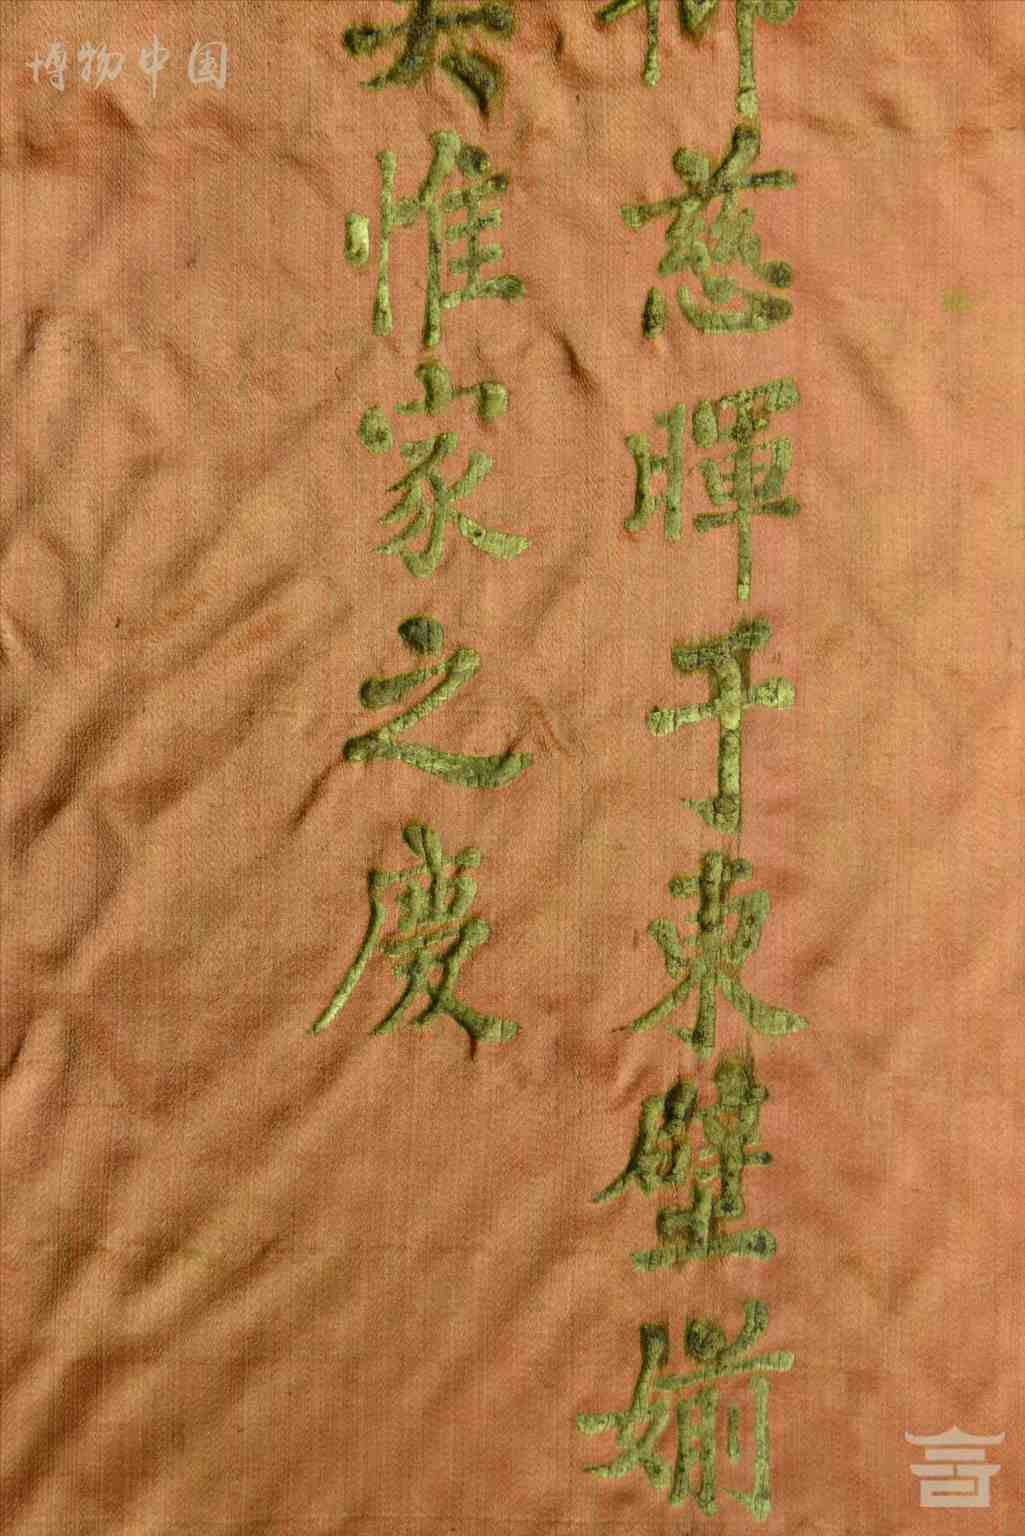 慈暉于東壁媊
惟家之慶
博物中国